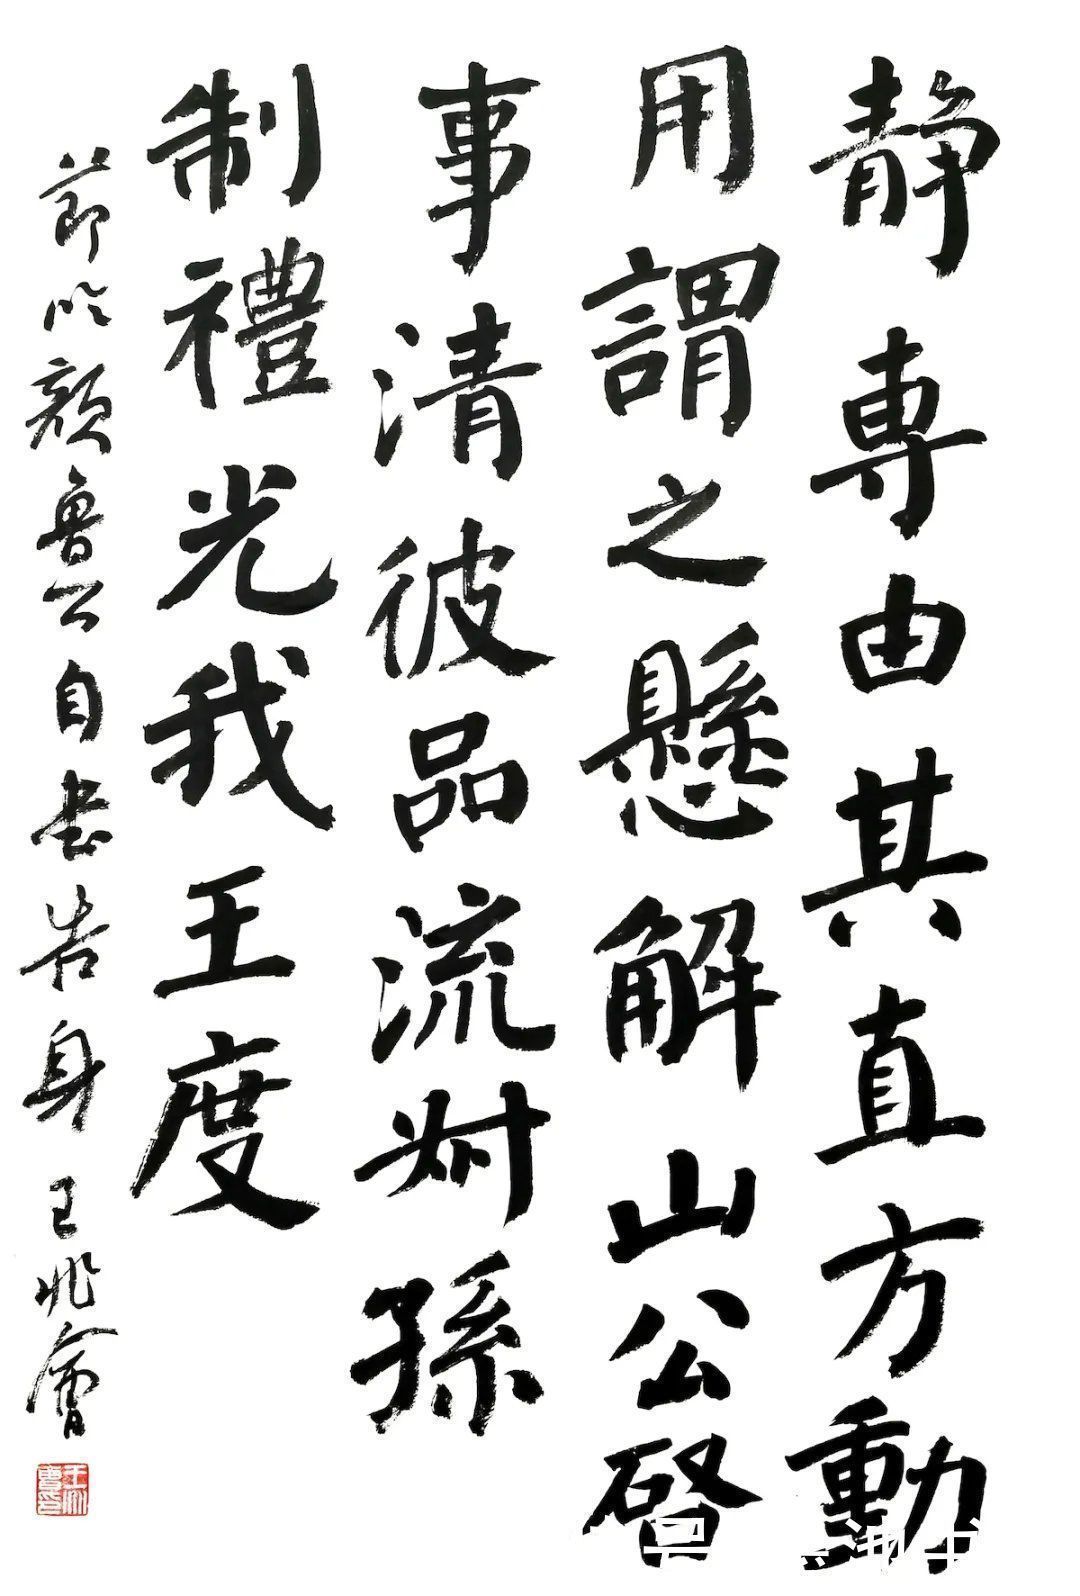 静専由其直方動
用謂之懸解山公啓
事清彼品流叔孫
制禮光我王度
節临顔魯公自书告身 王兆會